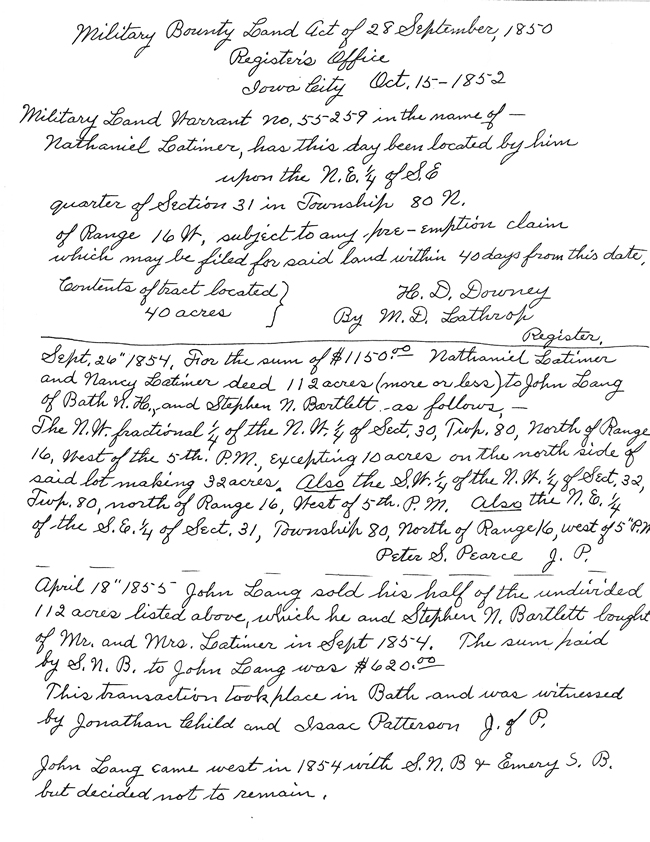 Military Bounty Land Act of 28 September, 1850
Register's Office
Iowa City Oct. 15-1852
Military Land Warrant no. 55-259 in the name of —
Nathaniel Latimer, has this day been located by him
upon the N.E. ¼ of SE
quarter of Section 31 in Township 80 N.
of Range 16 W, subject to any pre-emption claim
which may be filed for said land within 40 days from this date.
Contents of tract located } H. D. Downey
40 acres By M. D. Lathrop
Register.
Sept. 26" 1854. For the sum of $1150.00 Nathaniel Latimer
and Nancy Latimer deed 112 acres (more or less) to John Lang
of Bath N. H., and Stephen N. Bartlett - as follows, —
The N.W. fractional ¼ of the N.W. ¼ of Sect. 30, Twp. 80, North of Range
16, West of the 5-th. P.M., excepting 10 acres on the north side of
said lot making 32 acres. Also the S.W. ¼ of the N.W. ¼ of Sect, 32,
Twp. 80, north of Range 16, West of 5th. P. M. Also the N.E. ¼
of the S.E. ¼ of Sect. 31, Township 80, North of Range 16, west of 5" P.M
Peter S. Pearce J. P.
April 18" 1855 John Lang sold his half of the undivided
112 acres listed above, which he and Stephen N. Bartlett bought
of Mr. and Mrs. Latimer in Sept 1854. The sum paid
by S. N. B. to John Lang was $620.00
This transaction took place in Bath and was witnessed
by Jonathan Child and Isaac Patterson J. of P.
John Lang came west in 1854 with S. N. B & Emery S. B.
but decided not to remain.